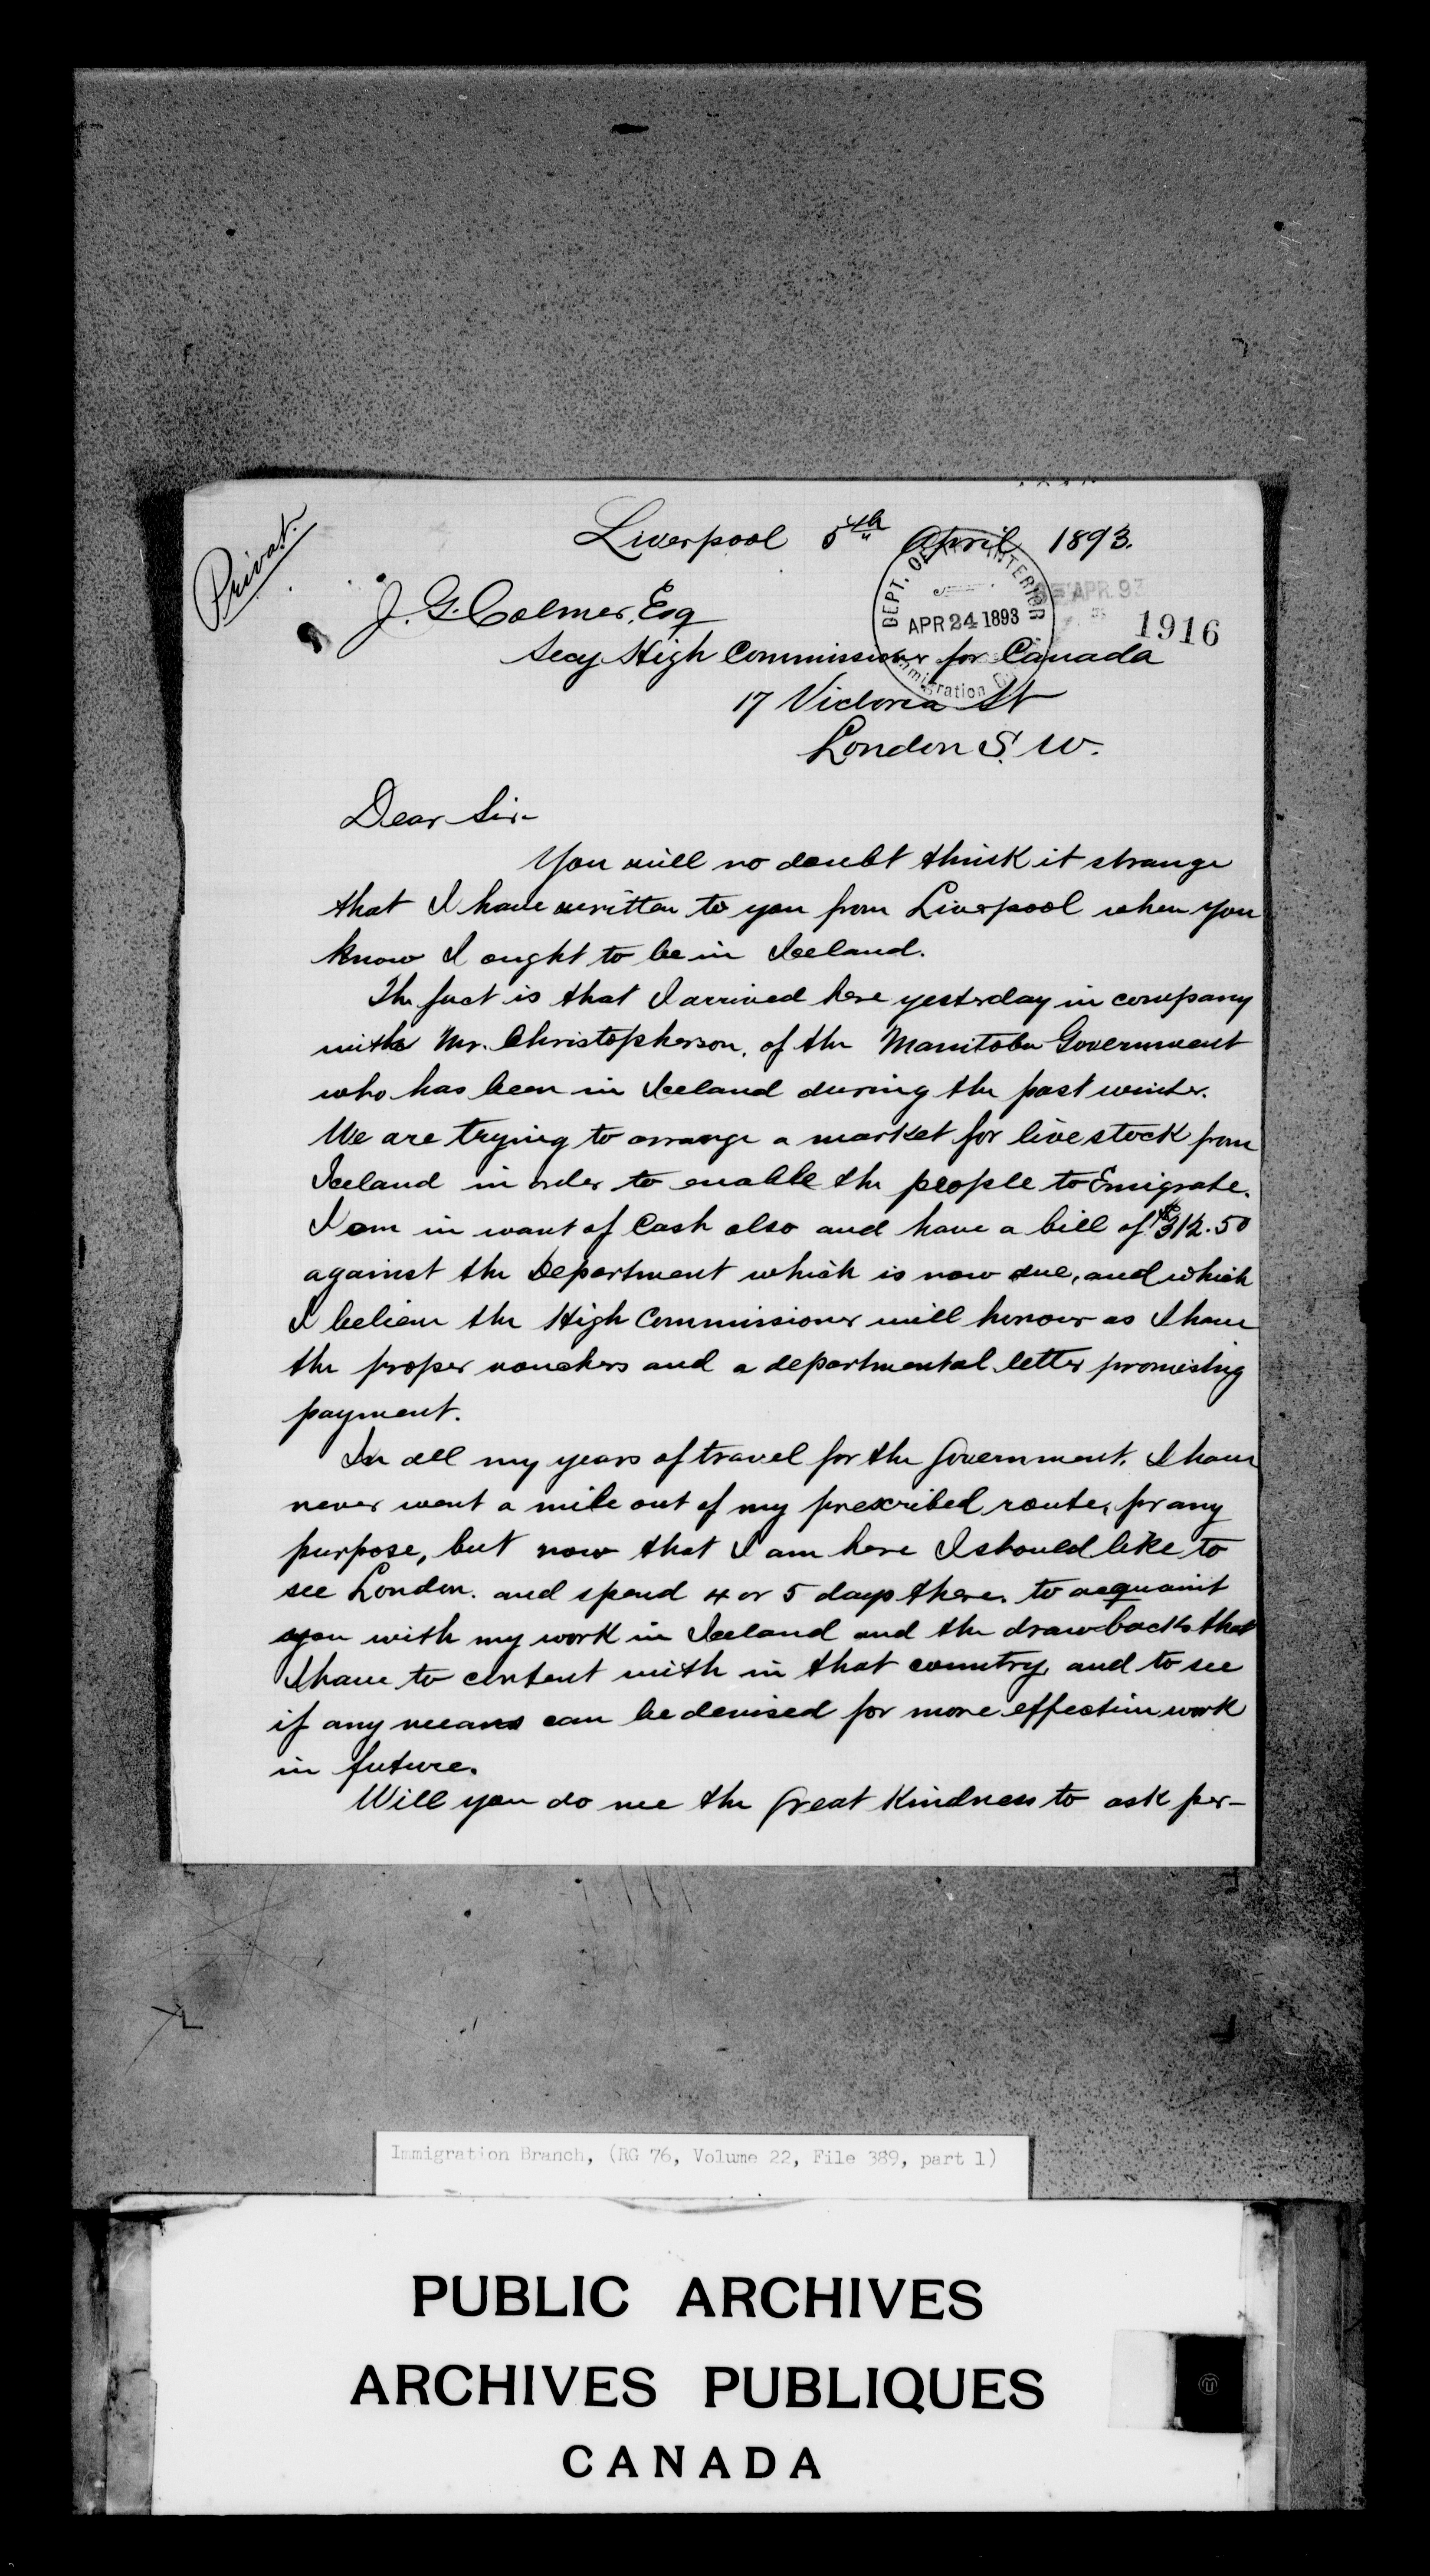 Privat.
Liverpool 5th April 1893.
DEPT. OF INTERIOR
APR 24 1893
Immigration
APR. 93
1916
J. G. Colmer, Esq
Secy High Commissioner for Canada
17 Victoria St
London S. W.
Dear Sir-
You will no doubt think it strange
that I have written to you from Liverpool when you
know I ought to be in Iceland.
The fact is that I arrived here yesterday in company
with Mr. Christopherson, of the Manitoba Government
who has been in Iceland during the past winter.
We are trying to arrange a market for live stock from
Iceland in order to enable the people to Emigrate.
I am in want of Cash also and have a bill of $312.50
against the Department which is now due, and which
I believe the High Commissioner will honour as I have
the proper vouchers and a departmental letter promising
payment.
In all my years of travel for the Government, I have
never went a mile out of my prescribed route, for any
purpose, but now that I am here I should like to
see London. and spend 4 or 5 days there. to acquaint
you with my work in Iceland and the drawbacks that
I have to contend with in that country, and to see
if any means can be devised for more effective work
in future.
Will you do me the great Kindness to ask per-
Immigration Branch, (RG 76, Volume 22, File 389, part 1)
PUBLIC ARCHIVES
ARCHIVES PUBLIQUES
CANADA